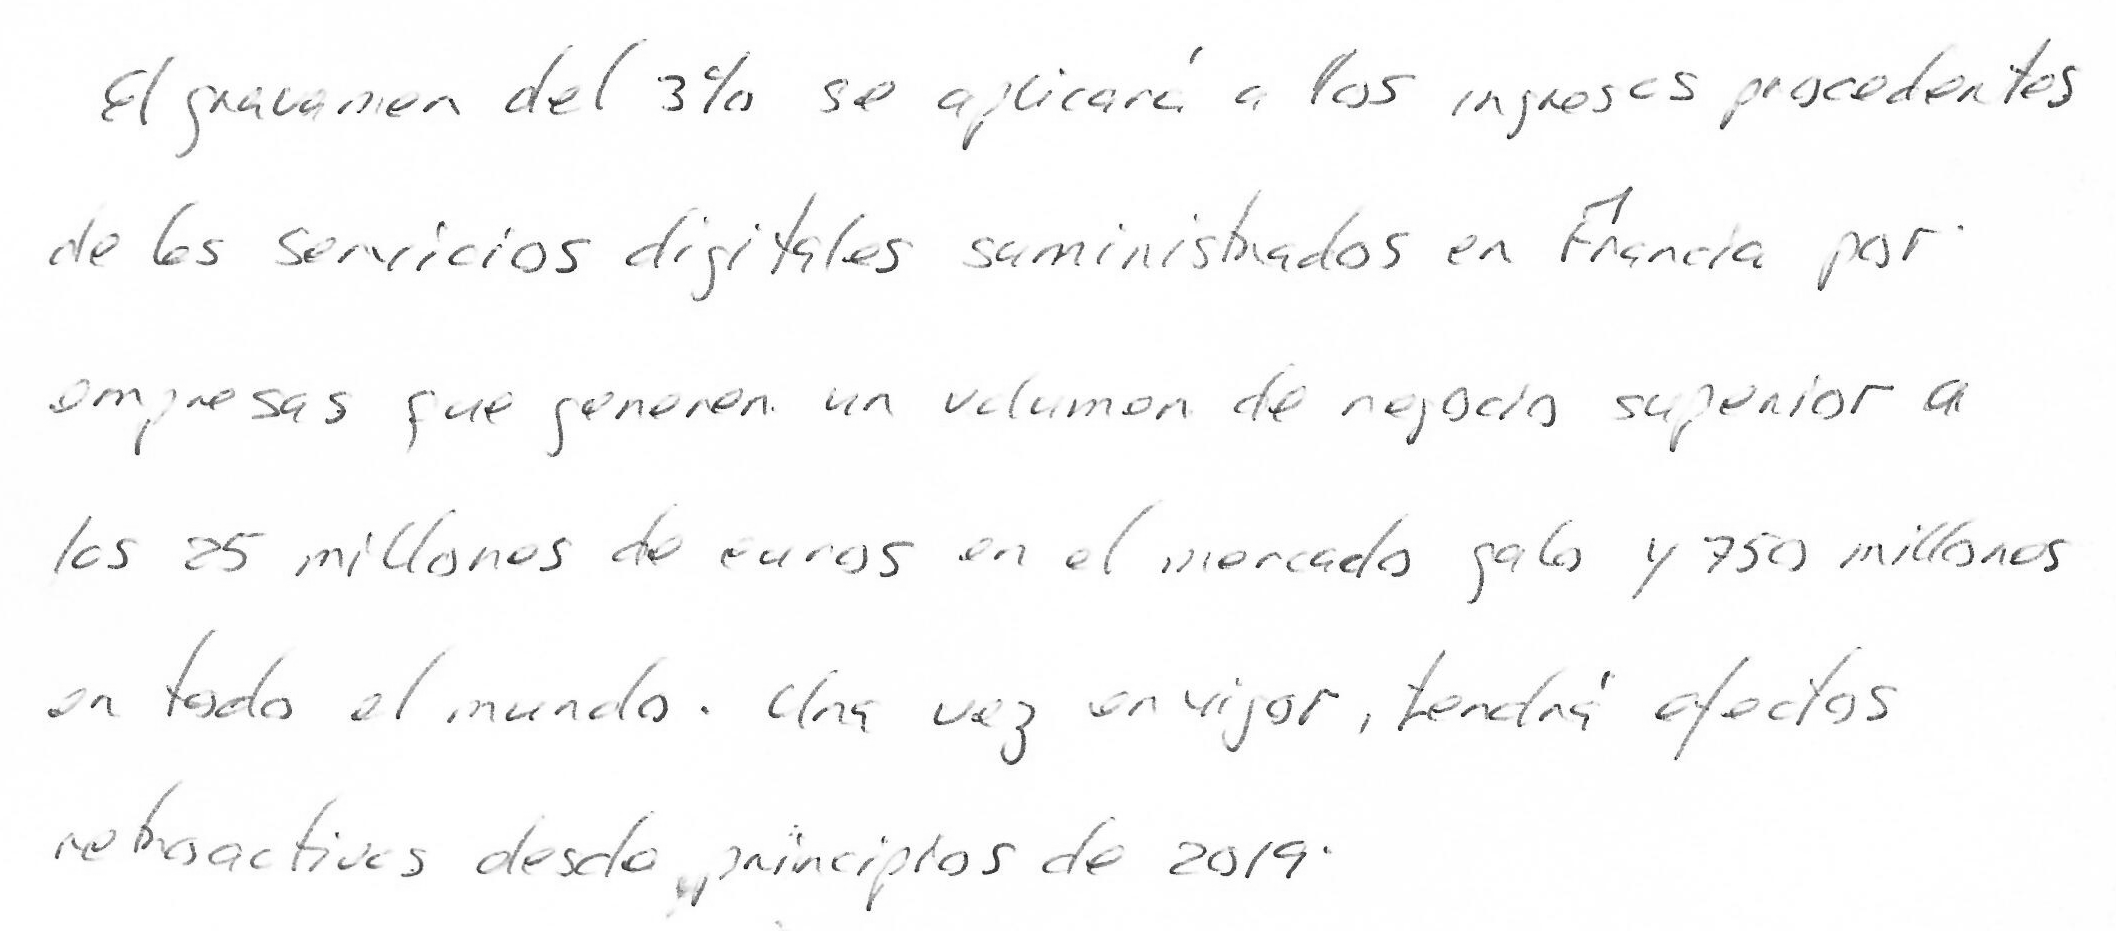 El gravamen del 3% se aplicará a los ingresos procedentes
de los servicios digitales suministrados en Francia por
empresas que generen un volumen de negocio superior a
los 25 millones de euros en el mercado galo y 750 millones
en todo el mundo. Una vez en vigor, tendrá efectos
retroactivos desde principios de 2019.